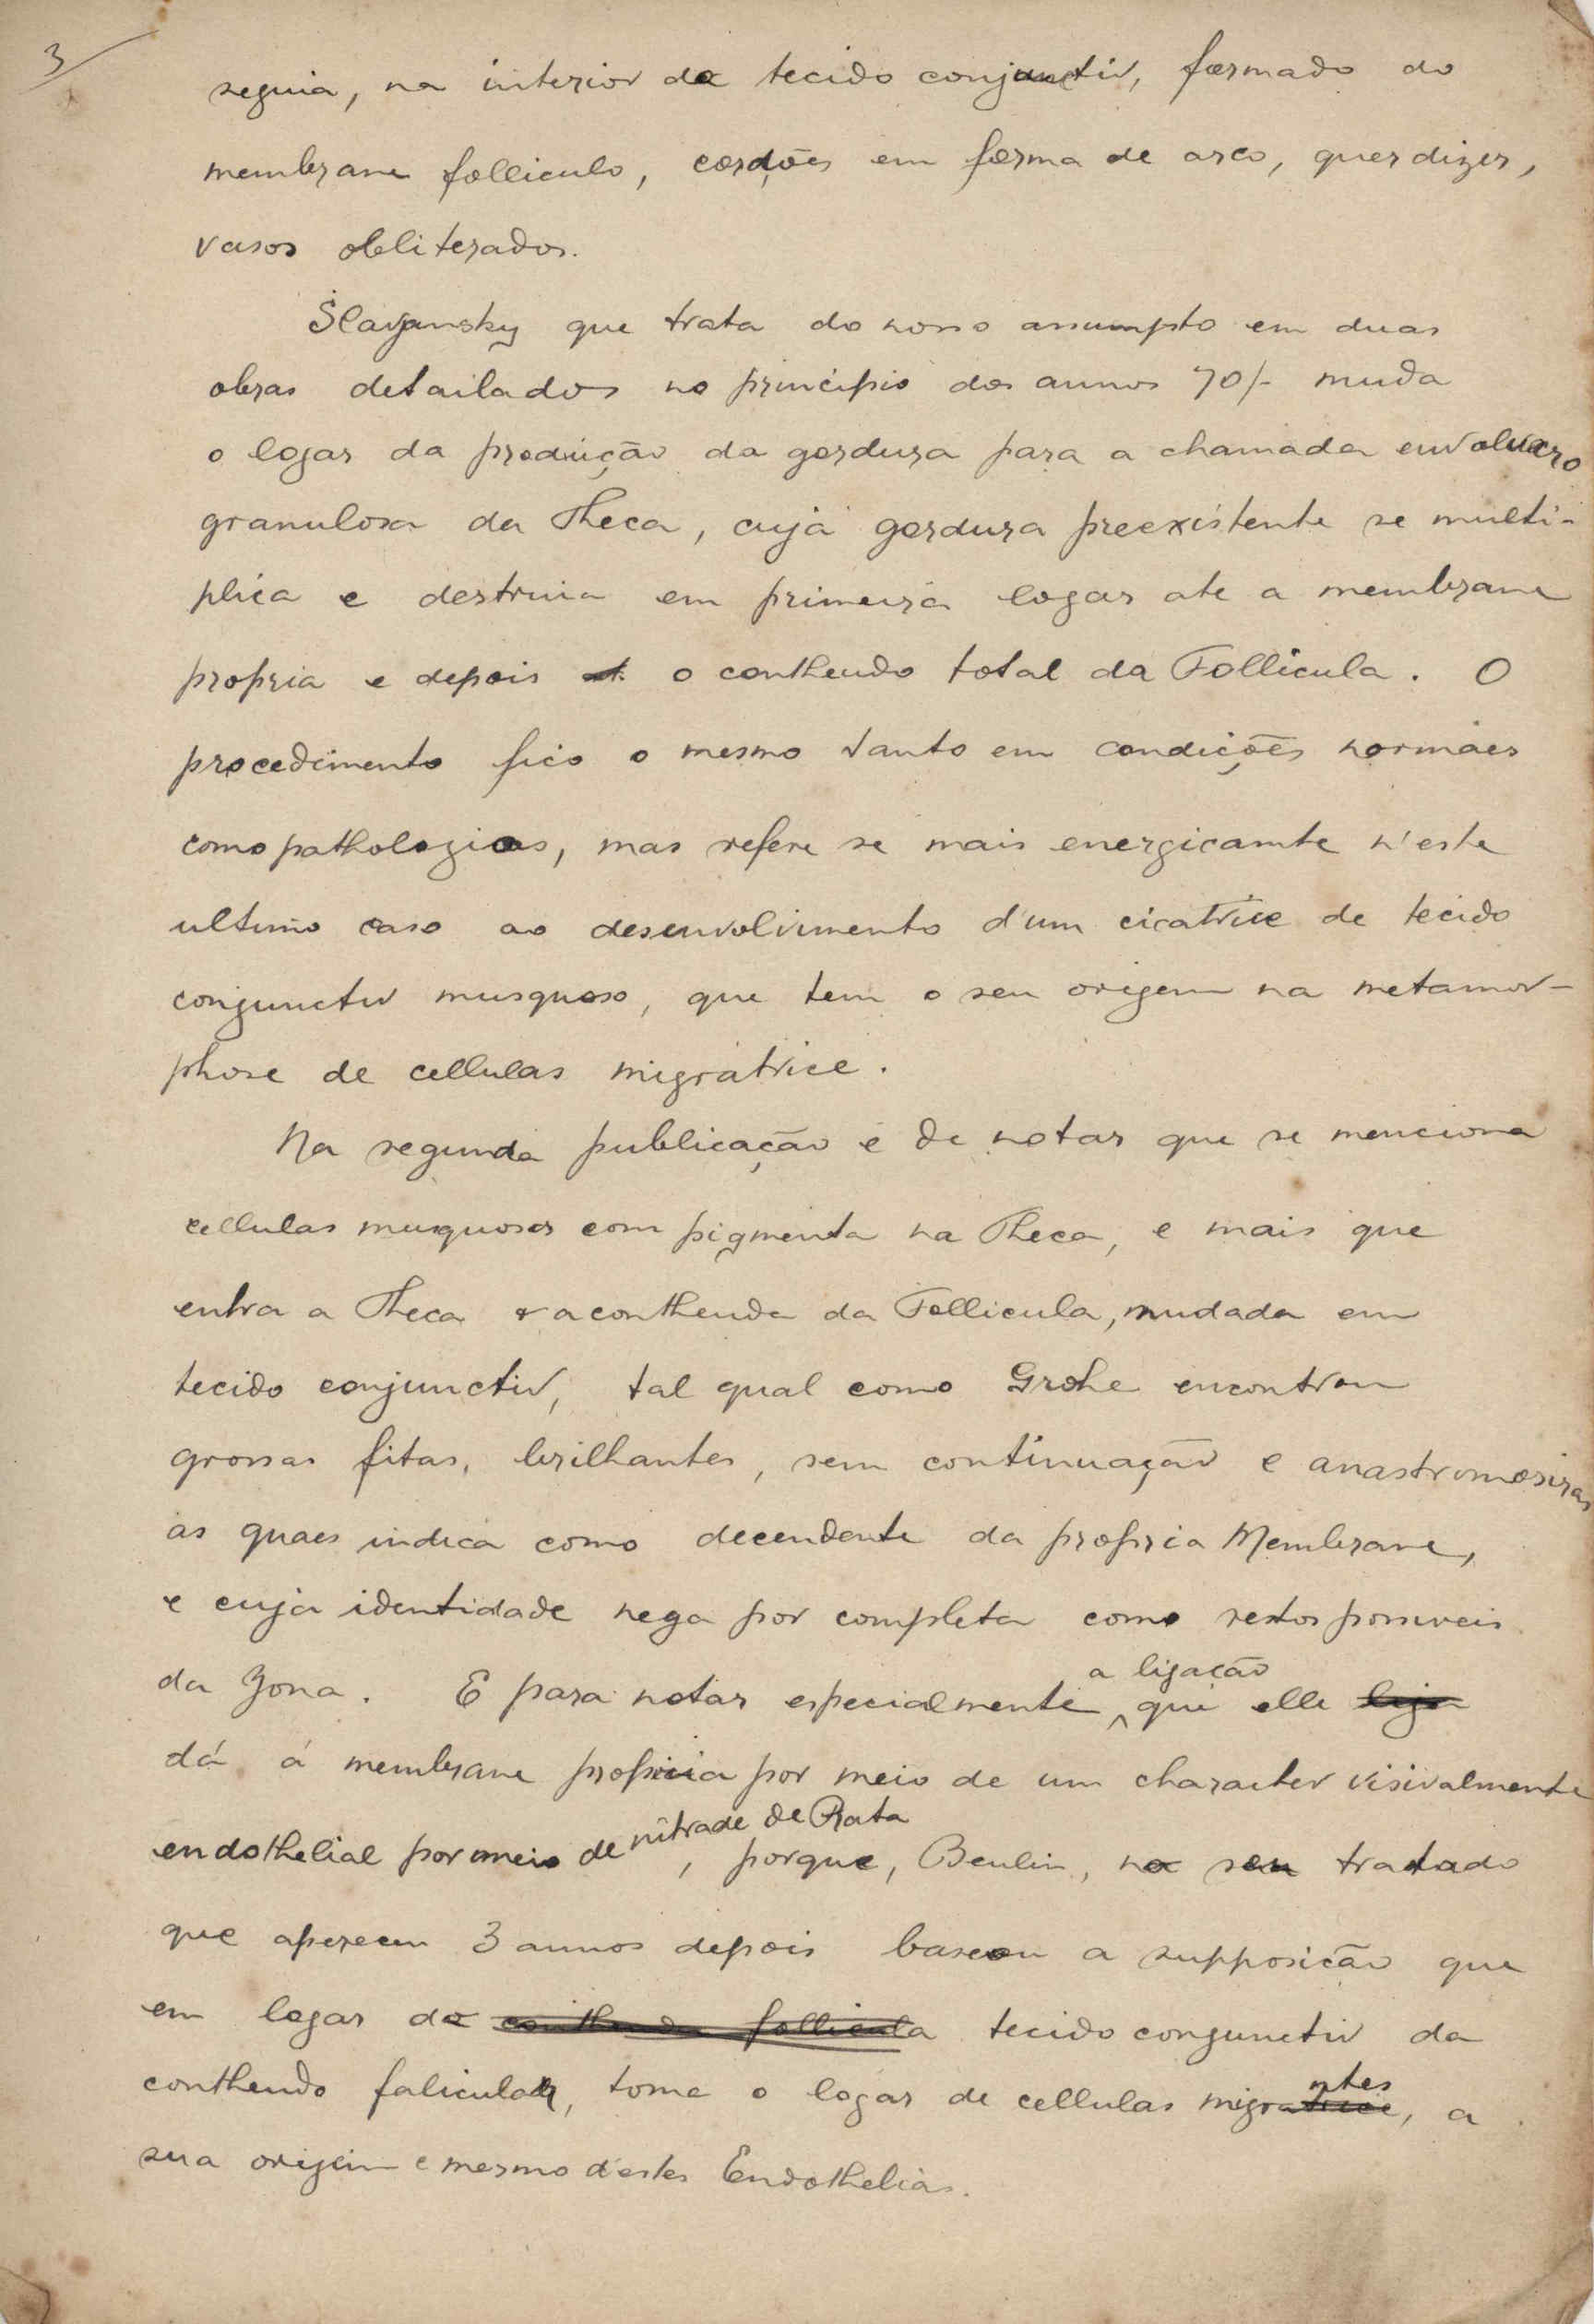 3
seguia, na interior da tecido conjunctiv, formado do
membrane folliculo, cordões em forma de arco, quer dizer,
vasos obliterados.
Slavjansky que trata do nosso assumpto em duas
obras detailados no principio dos annos 70/- muda
o logar da producção da gordura para a chamada envolucro
granulosa da Theca, cuja gordura preexistente se multi-
plica e destruia em primeira logar ate a membrane
propria e depois o conthendo total da Follicula. O
procedimento fico o mesmo tanto em condições normaes
como pathologicas, mas refere se mais energicamte n'este
ultimo caso ao desenvolvimento d'um cicatrice de tecido
conjunctiv musquoso, que tem o seu origem na metamor-
phose de cellulas migratrice.
Na segunda publicação é de notar que se menciona
cellulas musquosas com pigmenta na Theca, e mais que
entra a Theca e a conthenda da Follicula, mudada em
tecido conjunctiv, tal qual como Grohe encontrou
grossas fitas, brilhantes, sem continuação e anastromosiras
as quaes indica como decendente da propria Membrane,
e cuja identidade nega por completa como restos possiveis
da Zona. E para notar especialmente a ligação que elle liga
dá á membrane propria por meio de um character visivalmente
endothelial por meio de nitrade de Prata, porque, Beulin, no seu tratado
que aperecen 3 annos depois baseou a supposicão que
em logar do conthendo follicula tecido conjunctiv da
conthendo folicular, toma o logar de cellulas migrantes, a
sua origem e mesmo d'estes Endothelias.